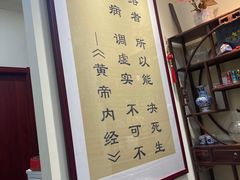 络者 所以能 决死生
病 调虚实 不可不
——《黄帝内经》